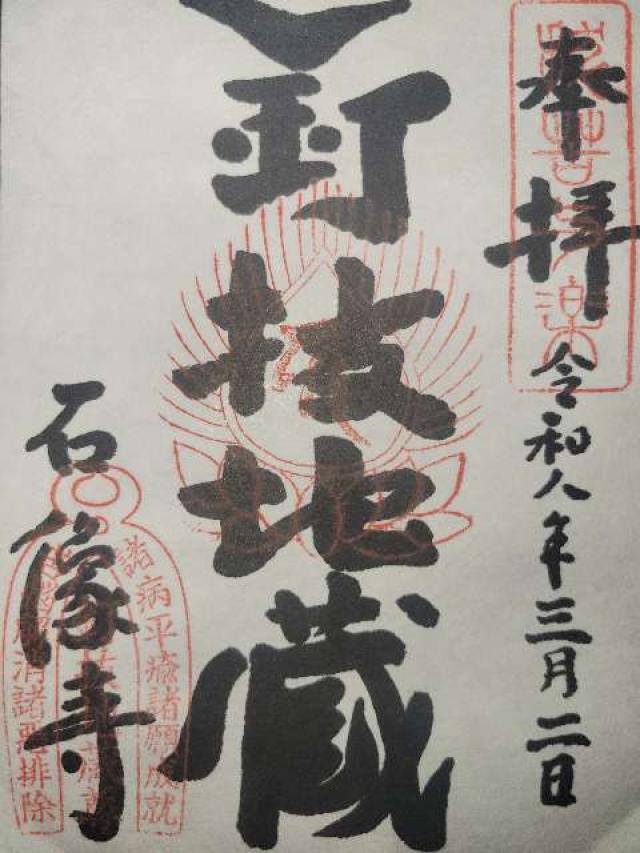 奉拝
令和八年三月二日
釘抜地蔵
石像寺
諸病平癒諸願成就
消諸悪排除